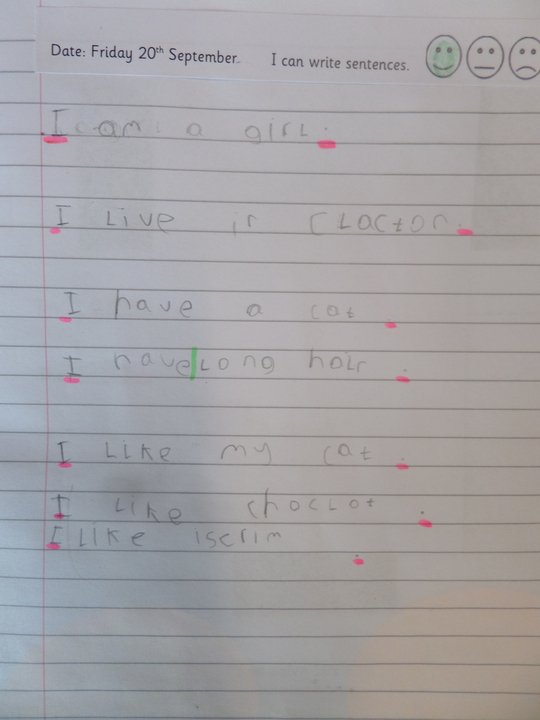 Date: Friday 20th September. I can write sentences.
I am a girL.
I Live in CLactor.
I have a cat.
I have Long hair.
I Like my cat.
I Like chocLot.
I Like iscrim.